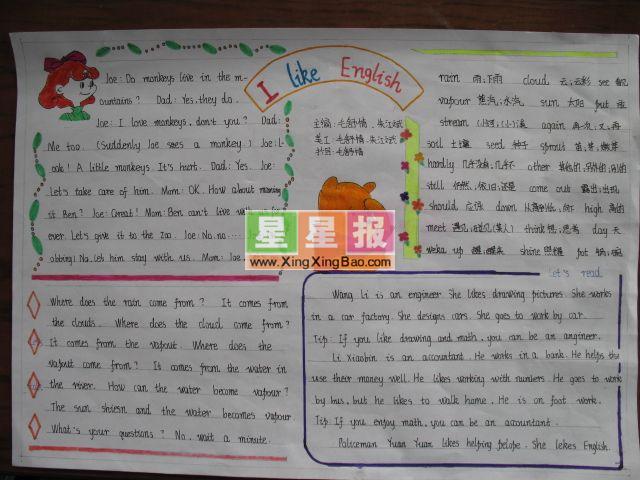 I like English
Joe: Do monkeys live in the m-
ountains? Dad: Yes, they do.
Joe: I love monkeys, don't you? Dad:
Me too. (Suddenly Joe sees a monkey.) Joe: L-
ook! A little monkeys. It's hurt. Dad: Yes. Joe:
Let's take care of him. Mom: OK. How about
it Ben? Joe: Great! Mom: Ben can't live with
ever. Let's give it to the zoo. Joe: No, no
Let him stay with us. Mom: Joe
主编:毛舒情、朱江斌
美工:毛舒情、朱江斌
书写:毛舒情
星星报
www.XingXingBao.com
rain 雨;下雨 cloud 云;云彩 see 看见
vapour 蒸汽;水汽 sun 太阳 put 放
stream (小河;(小)溪 again 再一次;又;再
soil 土壤 seed 种子 sprout 苗;芽;嫩芽
hardly 几乎没有;几乎不 other 其他的;另外的;别的
still 仍然;依旧;还是 come out 露出;出现
should 应该 down high 高的
meet 遇见;碰见(某人) think 想;思考 day 天
weka up 醒;醒来 shine 照耀 pot 锅
Let's read
Where does the rain come from? It comes from
the clouds. Where does the cloud come from?
It comes from the vapout. Where does the
vapout come from? It comes from the water in
the river. How can the water become vapour?
The sun shiesn and the water becomes vapour
What's your questions? No, wait a minute.
Wang Li is an engineer. She likes drawing pictures. She works
in a car factory. She designs cars. She goes to work by car.
Tip: If you like drawing and math, you can be an angineer.
Li Xiaobin is an accountant. He works in a bank. He helps the
use their money well. He likes working with numbers. He goes to work
by bus, but he likes to walk home. He is on foot work.
Tip: If you enjoy math, you can be an accountant.
Policeman Yuan Yuan likes helping pelope. She lekes English.